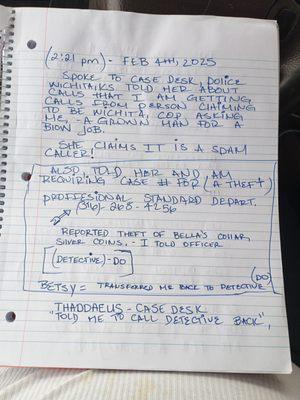 (2:21 pm) - FEB 4TH, 2025
SPOKE TO CASE DESK, POLICE
WICHITA/KS TOLD HER ABOUT
CALLS THAT I AM GETTING
CALLS FROM PERSON CLAIMING
TO BE WICHITA, COP ASKING
ME, A GROWN MAN FOR A
BLOW JOB.
SHE CLAIMS IT IS A SCAM
CALLER!
ALSO, TOLD HER AND AM
REQUIRING CASE # FOR (A THEFT)
PROFFESIONAL STANDARD DEPART.
(316)-268-4256
REPORTED THEFT OF BELLA'S COLLAR,
SILVER COINS. - I TOLD OFFICER
(DETECTIVE) - DO
(DO)
BETSY = TRANSFERRED ME BACK TO DETECTIVE
THADDAEUS - CASE DESK
"TOLD ME TO CALL DETECTIVE BACK",